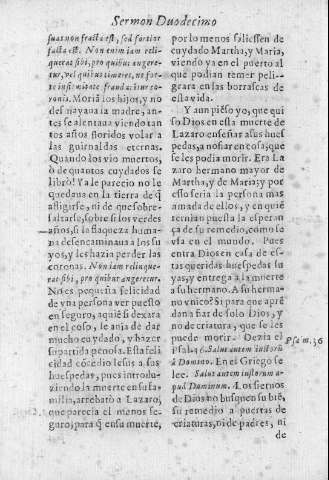 Sermon Duodecimo
suas non fracta est, sed fortior
facta est. Non enim iam reli-
querat sibi, pro quibus angere-
tur, vel quibus timeret, ne for-
te infirmitate fraudaretur co-
ronis. Moriã los hijos, y no
desmayaua la madre, an-
tes se alentaua viendo tan
tos años floridos volar a
las guirnaldas eternas.
Quando los vio muertos,
ò de quantos cuydados se
librò! Ya le parecio no le
quedaua en la tierra de q̃
afligirse, ni de que sobre-
saltarse, sobre si los verdes
años, si la flaqueza huma-
na desencaminaua a los su
yos, y les hazia perder las
coronas. Non iam relique-
rat sibi, pro quibus angeretur.
No es pequeña felicidad
de vna persona ver puesto
en seguro, aquiẽ si dexara
en el coso, le auia de dar
mucho cuydado, y hazer
su partida penosa. Esta feli
cidad cõcedio Iesus a sus
huespedas, pues introdu-
ziendo la muerte en su fa-
milia, arrebatò a Lazaro,
que parecia el menos se-
guro; para q̃ en su muerte,
por lo menos saliessen de
cuydado Martha, y Maria,
viendo ya en el puerto al
que podian temer peli-
grara en las borrascas de
esta vida.
Y aun piẽso yo, que qui
so Dios en esta muerte de
Lazaro enseñar a sus hues
pedas, a no fiar en cosa; que
se les podia morir. Era La
zaro hermano mayor de
Martha, y de Maria; y por
esso seria la persona mas
amada de ellos, y en quiẽ
ternian puesta la esperan
ça de su remedio, como se
vsa en el mundo. Pues
entra Dios en casa de es-
tas queridas huespedas su
yas, y entrega a la muerte
a su hermano. A su herma-
no vnico? Si para que aprẽ
dan a fiar de solo Dios, y
no de criatura, que se les
puede morir. Dezia el
psal. 36. Salus autem iustorũ
à Domino. En el Griego se
lee. Salus autem iustorum a-
pud Dominum. A los sieruos
de Dios no busquen su biẽ,
su remedio a puertas de
criaturas, ni de padres, ni
Psa m. 36
de